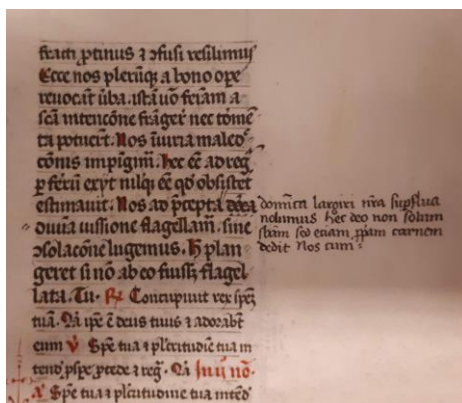 fracti ꝓtinus ⁊ ↄfusi resilimus
Ecce nos plerūqȝ a bono ope
reuocāt ūba. istā ūo feīam a
scā intencōne frāger nec tōmē
ta potuert. Nos īiuria maled
cōnis impigim̄. Hec eē ad reg
ꝑ ferū exyt nilqȝ eē qd obsistet
estimauit. Nos ad p̄cepta
diuīa iussione flagellam̄. sine
ↄsolacōne lugemus. H plan
geret si nō ab eo fuissȝ flagel
lata. Tu. R Concupiuit rex spēȝ
tuā. Qā ipē ē deus tuus ⁊ adorabt
eum V Spē tua ⁊ pl̄critudīe tua in
tendȝ pspe pcede ⁊ regȝ. Qā In ij nō.
A Spē tua ⁊ pl̄critudine tua intēd
domīca largiri nr̄a supflua
nolumus hec deo non solum
sb̄am sed eciam ꝓpiam carnem
dedit Nos cum